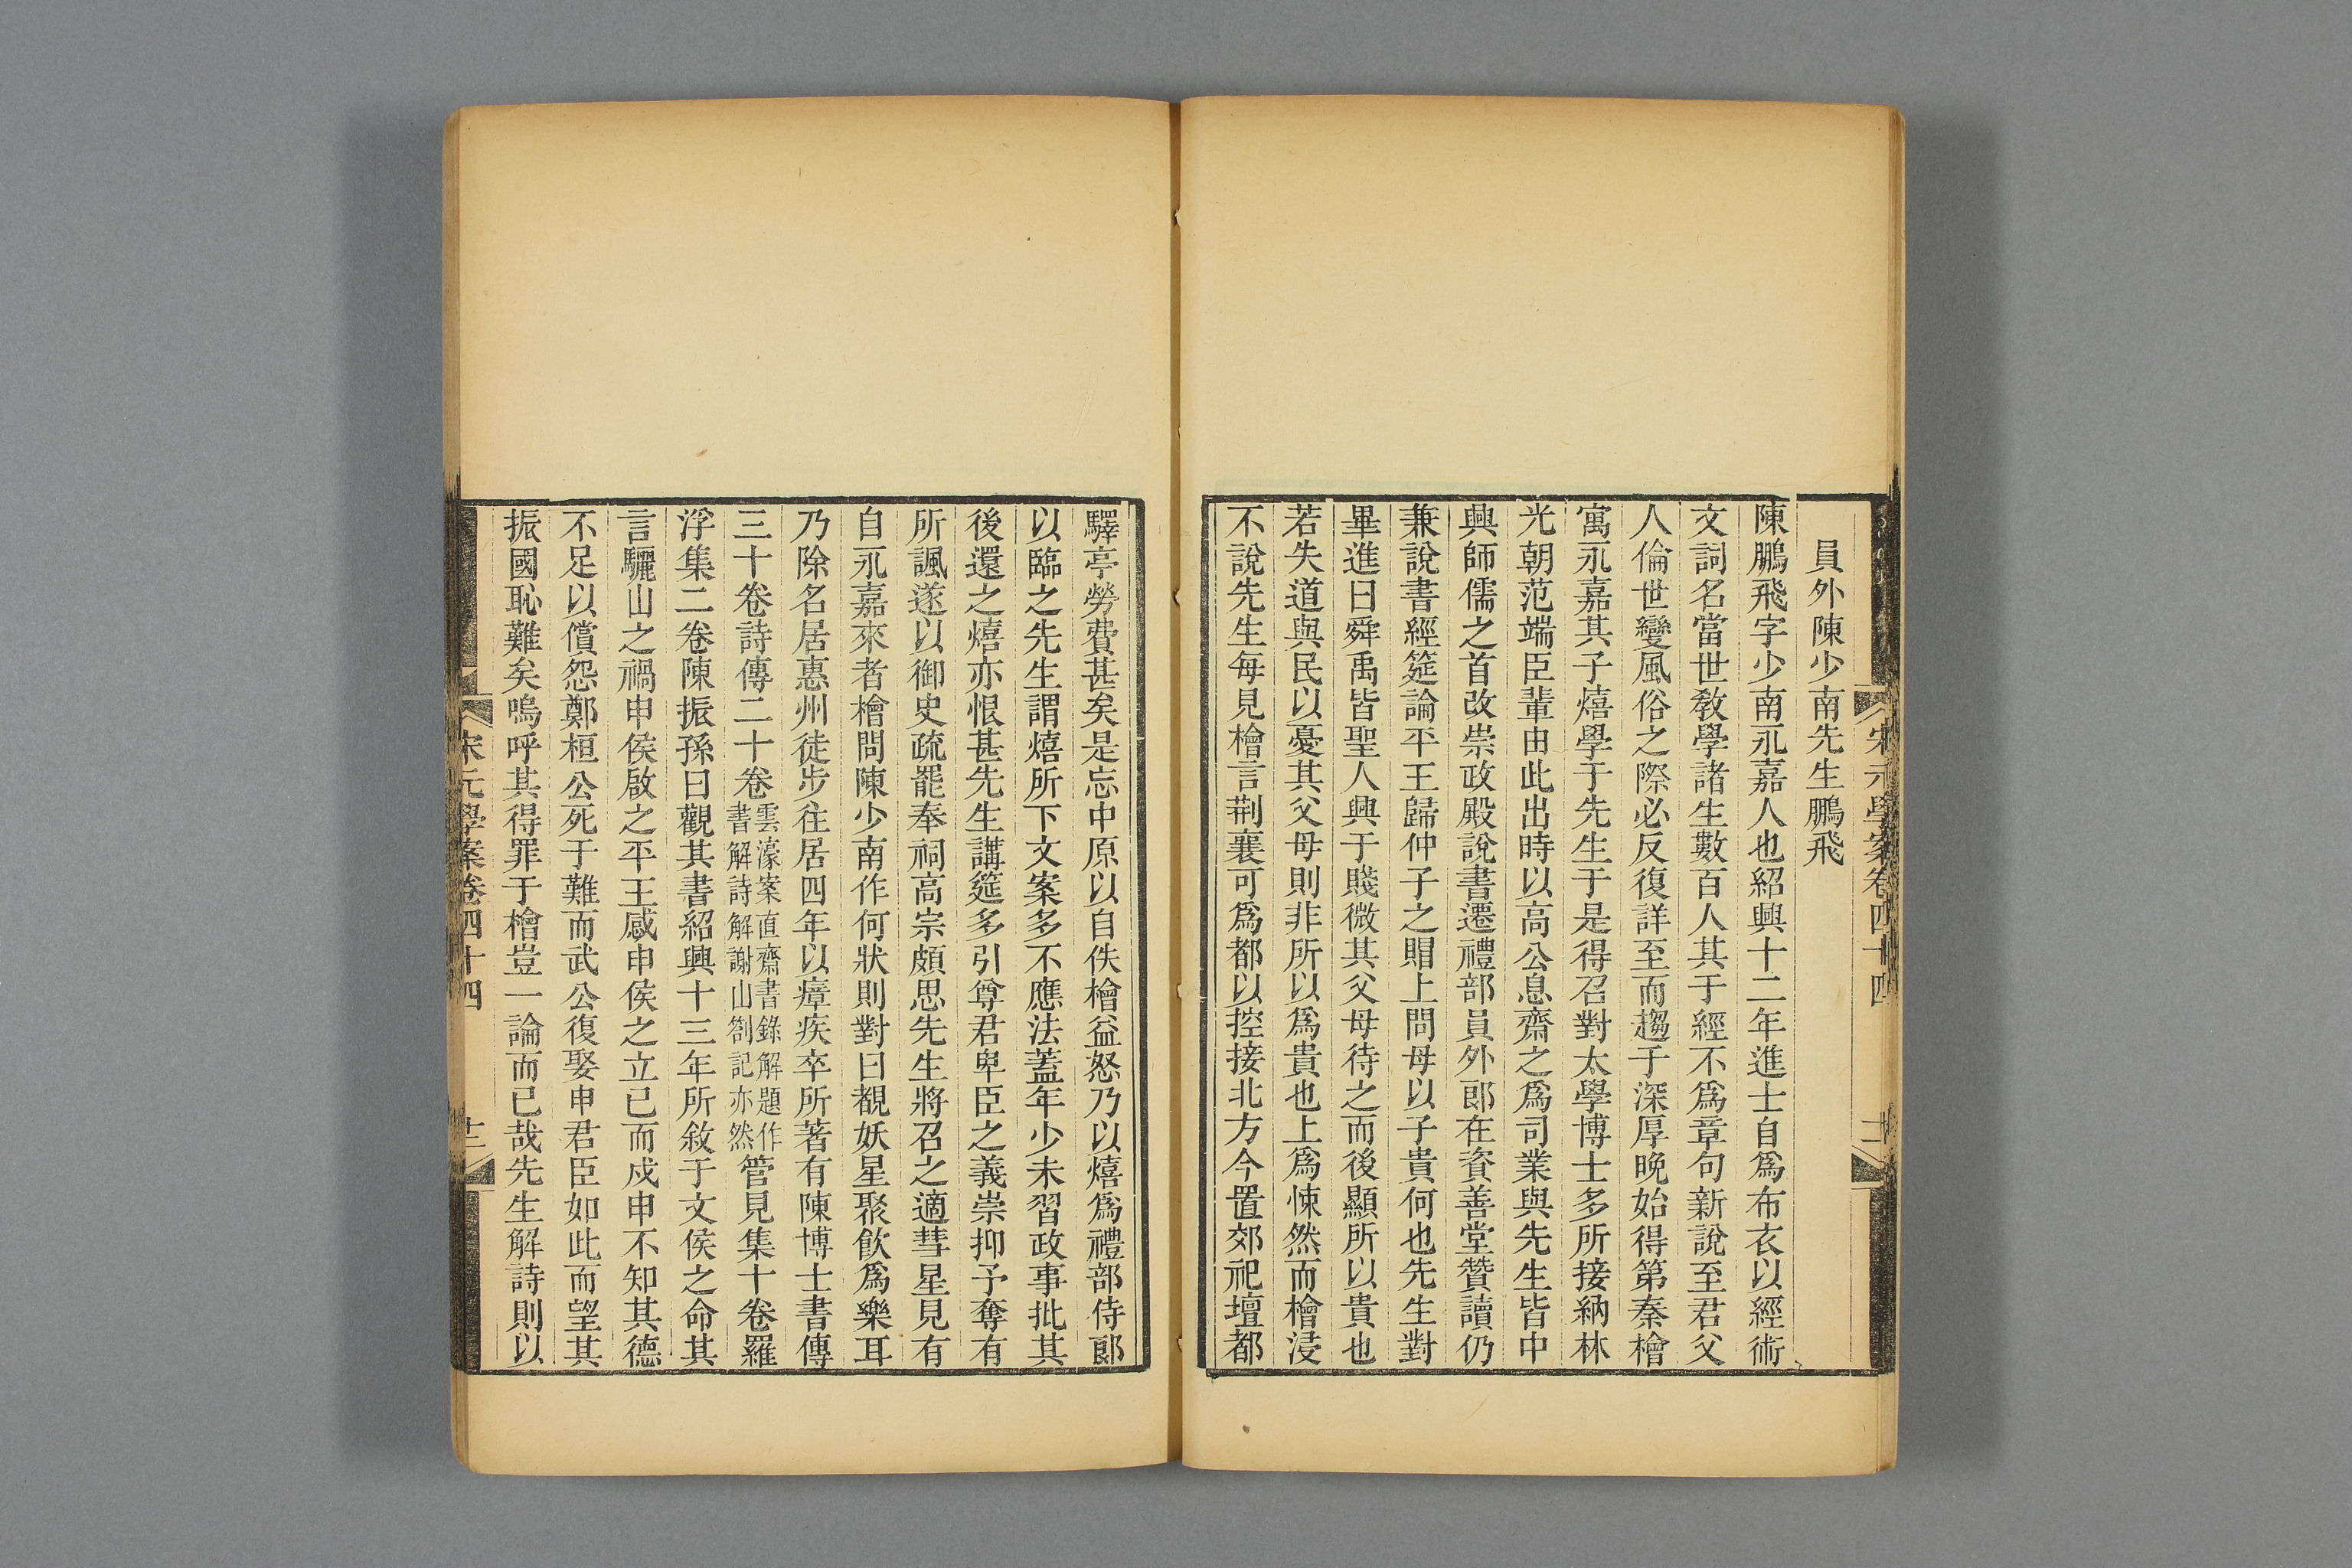 宋元學案卷四十四
十二
員外陳少南先生鵬飛
陳鵬飛字少南永嘉人也紹興十二年進士自爲布衣以經術
文詞名當世敎學諸生數百人其于經不爲章句新說至君父
人倫世變風俗之際必反復詳至而趨于深厚晚始得第秦檜
寓永嘉其子熺學于先生于是得召對太學博士多所接納林
光朝范端臣輩由此出時以高公息齋之爲司業與先生皆中
興師儒之首改崇政殿說書遷禮部員外郎在資善堂贊讀仍
兼說書經筵論平王歸仲子之賵上問母以子貴何也先生對
畢進曰舜禹皆聖人興于賤微其父母待之而後顯所以貴也
若失道與民以憂其父母則非所以爲貴也上爲悚然而檜浸
不說先生每見檜言荆襄可爲都以控接北方今置郊祀壇都
驛亭勞費甚矣是忘中原以自佚檜益怒乃以熺爲禮部侍郎
以臨之先生謂熺所下文案多不應法蓋年少未習政事批其
後還之熺亦恨甚先生講筵多引尊君卑臣之義崇抑予奪有
所諷遂以御史疏罷奉祠高宗頗思先生將召之適彗星見有
自永嘉來者檜問陳少南作何狀則對曰覩妖星聚飮爲樂耳
乃除名居惠州徒步往居四年以瘴疾卒所著有陳博士書傳
三十卷詩傳二十卷雲濠案直齋書錄解題作書解詩解謝山劄記亦然管見集十卷羅
浮集二卷陳振孫曰觀其書紹興十三年所敘于文侯之命其
言驪山之禍申侯啟之平王感申侯之立已而戍申不知其德
不足以償怨鄭桓公死于難而武公復娶申君臣如此而望其
振國恥難矣嗚呼其得罪于檜豈一論而已哉先生解詩則以
宋元學案卷四十四